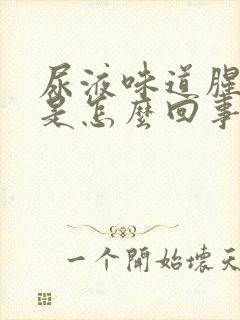 尿液味道腥
是怎麼回事
一个開始壞天